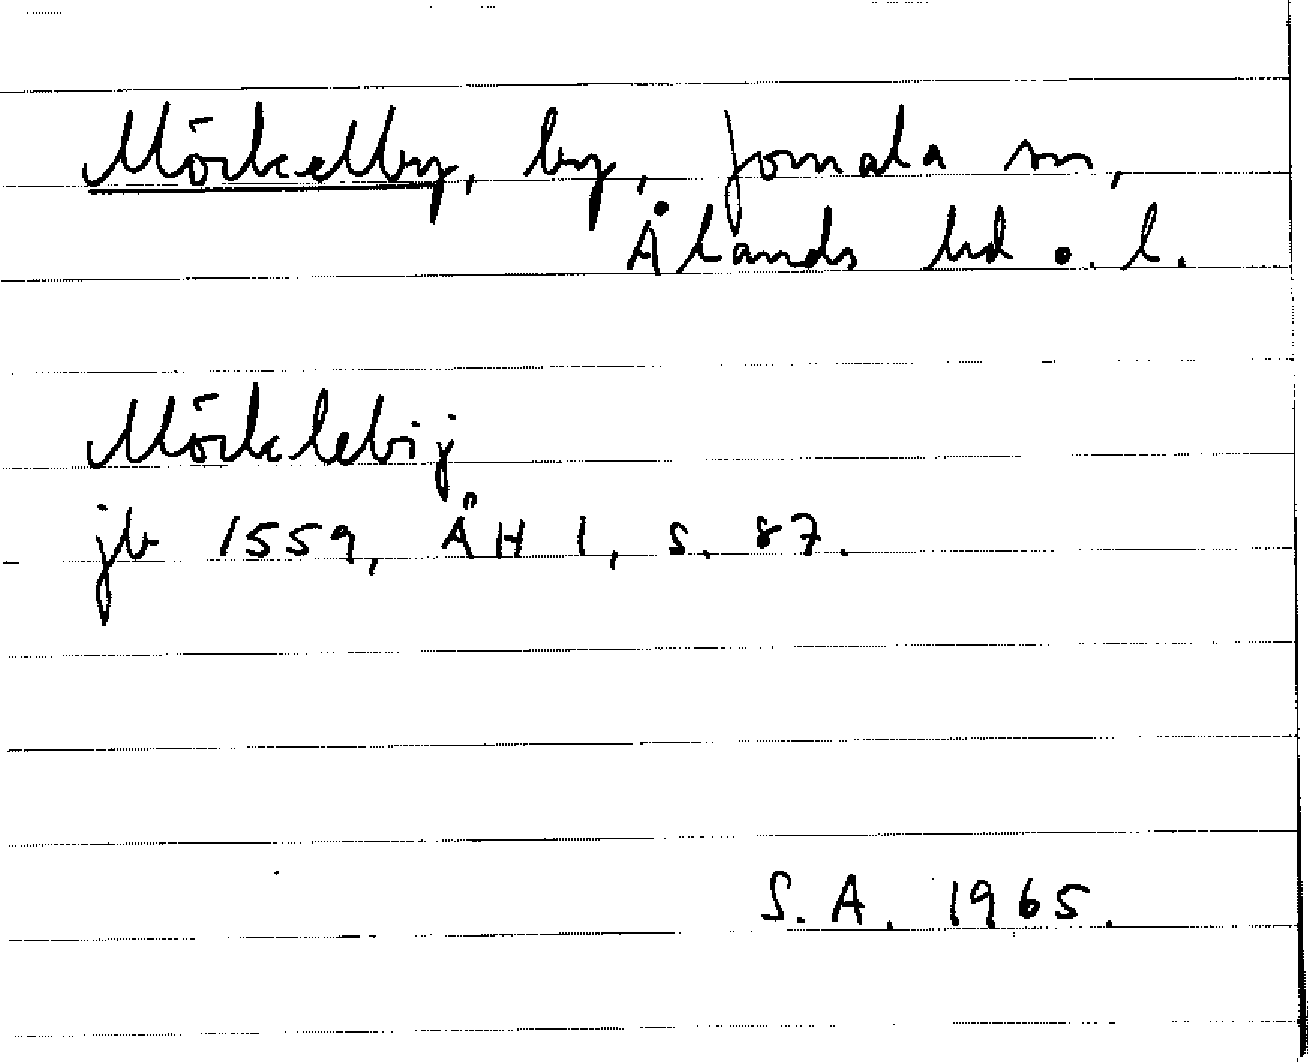 Mörkelby, by, Jomala sn,
Ålands hd o. l.
Mörklebij
jb 1559, ÅH 1, s. 87.
S. A. 1965.